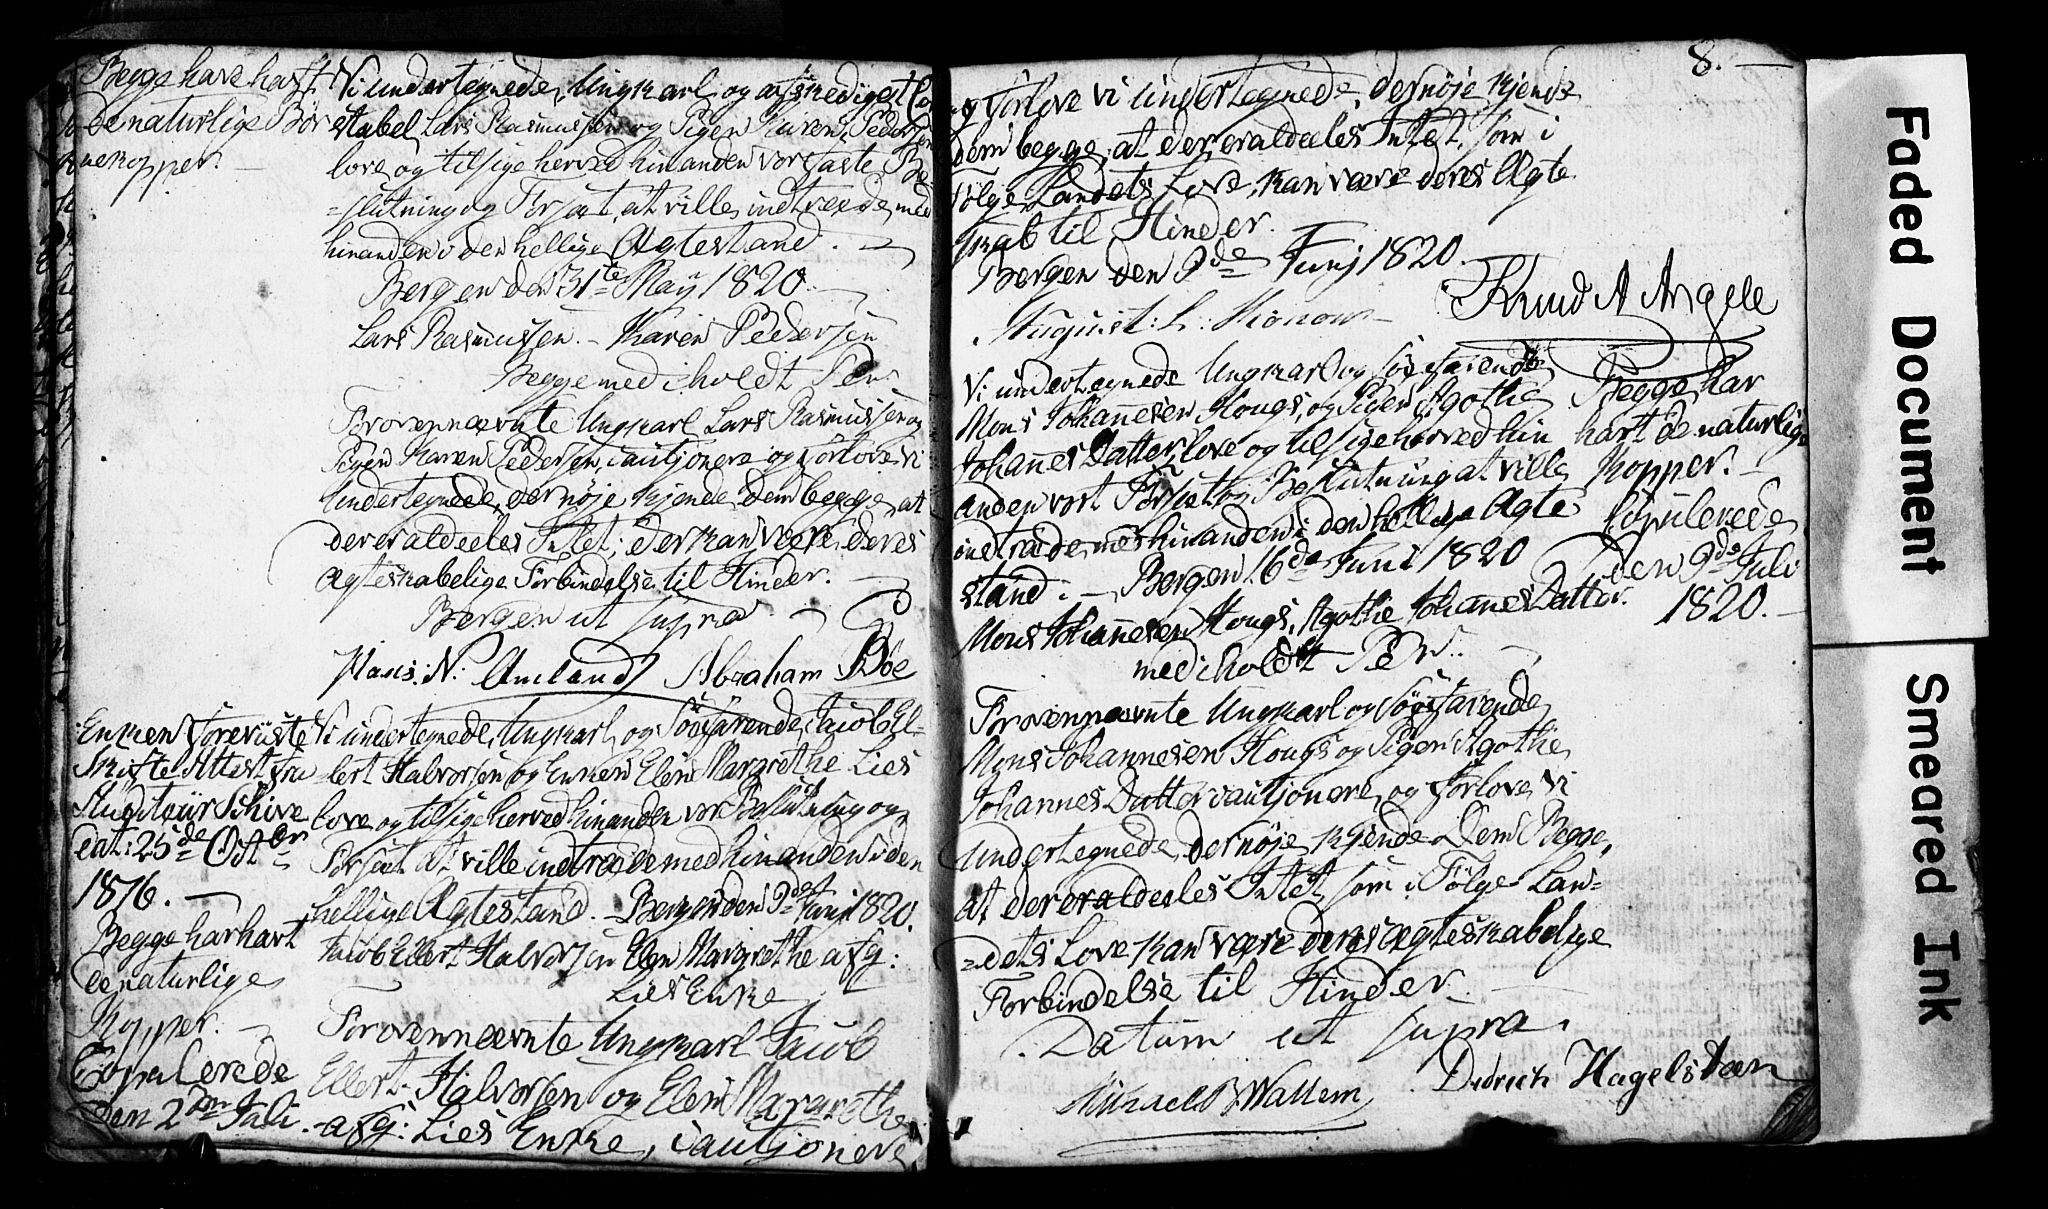 Begge have havt
de naturlige Bör
nekopper. —
Vi undertegnede, Ungkarl og afskediget
stabel Lars Rasmussen og Pigen Karen Pedersen
love og tilsige herved hinanden vor faste Be-
slutning og Forsæt, at ville indtræde med
hinanden i den hellige Ægtestand. —
Bergen den 31te May 1820. —
Lars Rasmussen. — Karen Pedersen
Begge med iholdt Pen.
Forovennævnte Ungkarl Lars Rasmussen og
Pigen Karen Pedersen, cautjonere og forlove vi
Undertegnede, der nöje kjende dem begge, at
der er aldeeles Intet, der kan være deres
Ægteskabelige Forbindelse til Hinder. —
Bergen ut supra. —
Hans: N: Amland Abraham Böe
Enken foreviiste
Skifte Attest fra
Auditeur Schive
dat: 25de Octbr
1816. —
Begge har havt
de naturlige
Kopper. —
Copulerede
den 2den Juli. —
Vi undertegnede, Ungkarl og Söefarende, Jacob El-
lert Halvorsen og Enken Elen Margrethe Lies
love og tilsige herved hinanden vor Beslutning og
Forsæt at ville indtræde med hinanden i den
hellige Ægtestand. — Bergen den 9de Junj 1820.
Jacob Ellert Halvorsen Elen Margrethe afg:
Lies Enke
Forovennævnte Ungkarl Jacob
Ellert Halvorsen og Elen Margrethe
afg: Lies Enke, cautjonere
8. —
og forlove vi undertegnede, der nöje kjende
dem begge, at der er aldeeles Intet, som i
Fölge Landets Love, kan være deres Ægte
skab til Hinder.
Bergen den 9de Junj 1820.
August: L: Konow — Knud A Angele
Vi undertegnede Ungkarl og Söefarende
Mons Johannesen Hougs, og Pigen Agothe
Johannes Datter, love og tilsige herved hin
anden vort Forsæt og Beslutning at ville
indtræde med hinanden i den hellige Ægte
stand. — Bergen 16de Juni 1820
Mons Johannesen Hougs, Agothe Johannes Datter.
med iholdt Pen. —
Begge har
havt de naturlige
Kopper. —
Copulerede
den 9de Juli
1820. —
Forovennævnte Ungkarl og Söefarende
Mons Johannesen Hougs og Pigen Agothe
Johannes Datter cautjonere og forlove vi
Undertegnede, der nöje kjende Dem Begge,
at der er aldeeles Intet som i Fölge Lan-
dets Love kan være deres ægteskabelige
Forbindelse til Hinder. —
Datum ut supra.
Michael B Wallem Didrich Hagelsteen
Faded Document
Smeared Ink